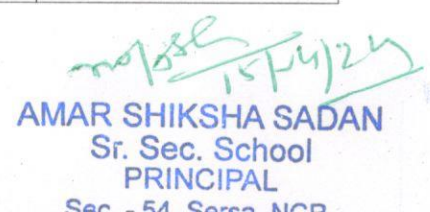 15/04/24
AMAR SHIKSHA SADAN
Sr. Sec. School
PRINCIPAL
Sec. - 54, Sorsa, NCR